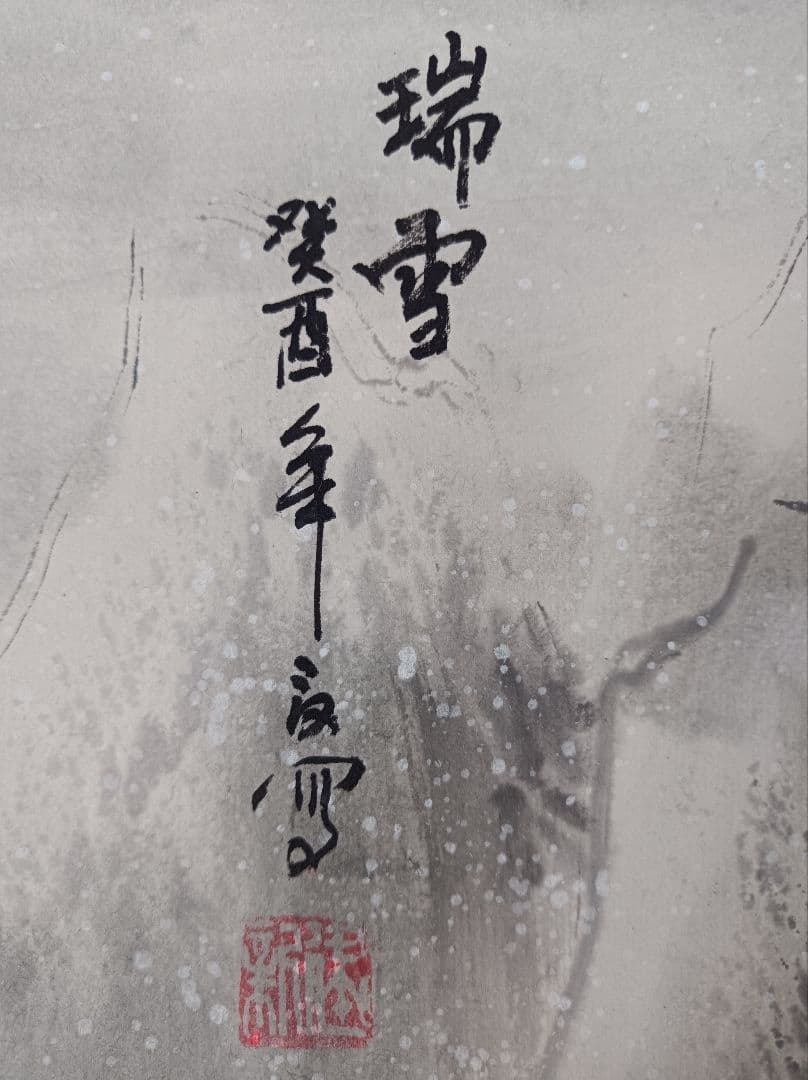 瑞雪
癸酉年 寫